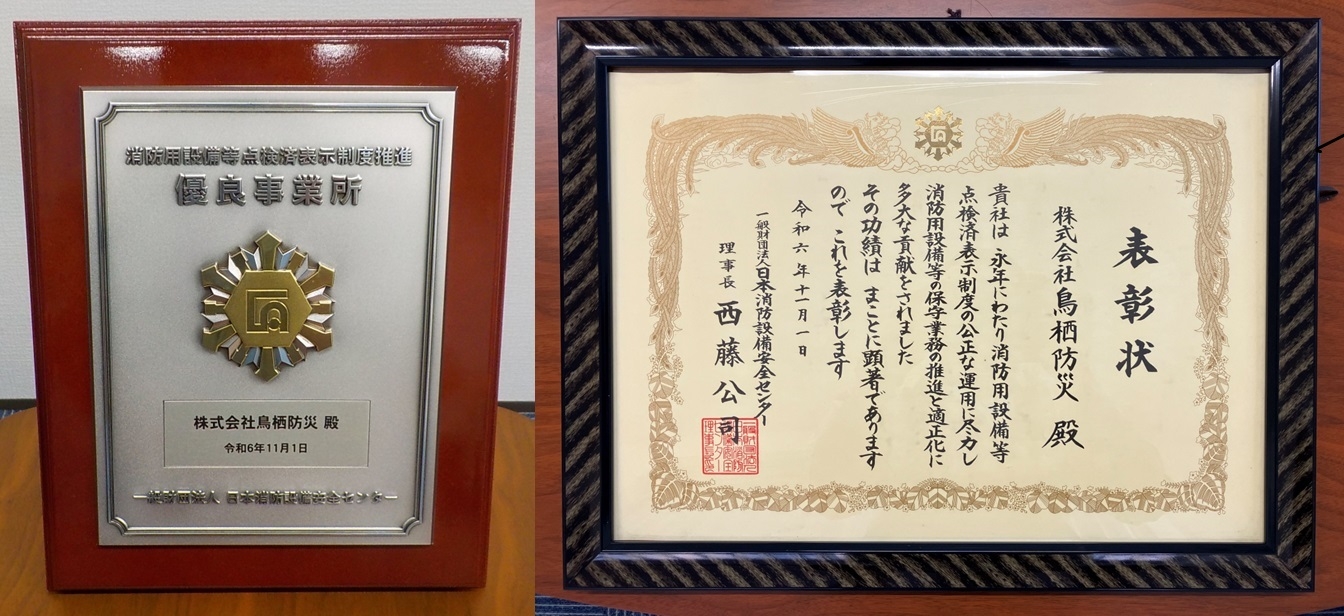 消防用設備等点検済表示制度推進
優良事業所
株式会社鳥栖防災 殿
令和6年11月1日
一般財団法人 日本消防設備安全センター
表彰状
株式会社鳥栖防災 殿
貴社は 永年にわたり消防用設備等
点検済表示制度の公正な運用に尽力し
消防用設備等の保守業務の推進と適正化に
多大な貢献をされました
その功績は まことに顕著であります
ので これを表彰します
令和六年十一月一日
一般財団法人日本消防設備安全センター
理事長 西藤公司